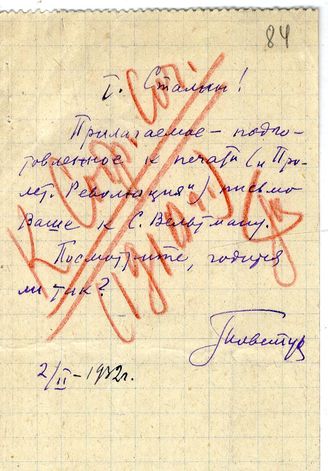 84
т. Сталин!
Прилагаемое – подго-
товленное к печати („Про-
лет. Революция“) письмо
Ваше к С. Вельтману.
Посмотрите, годится
ли так?
Товстух
2/II – 1932г.